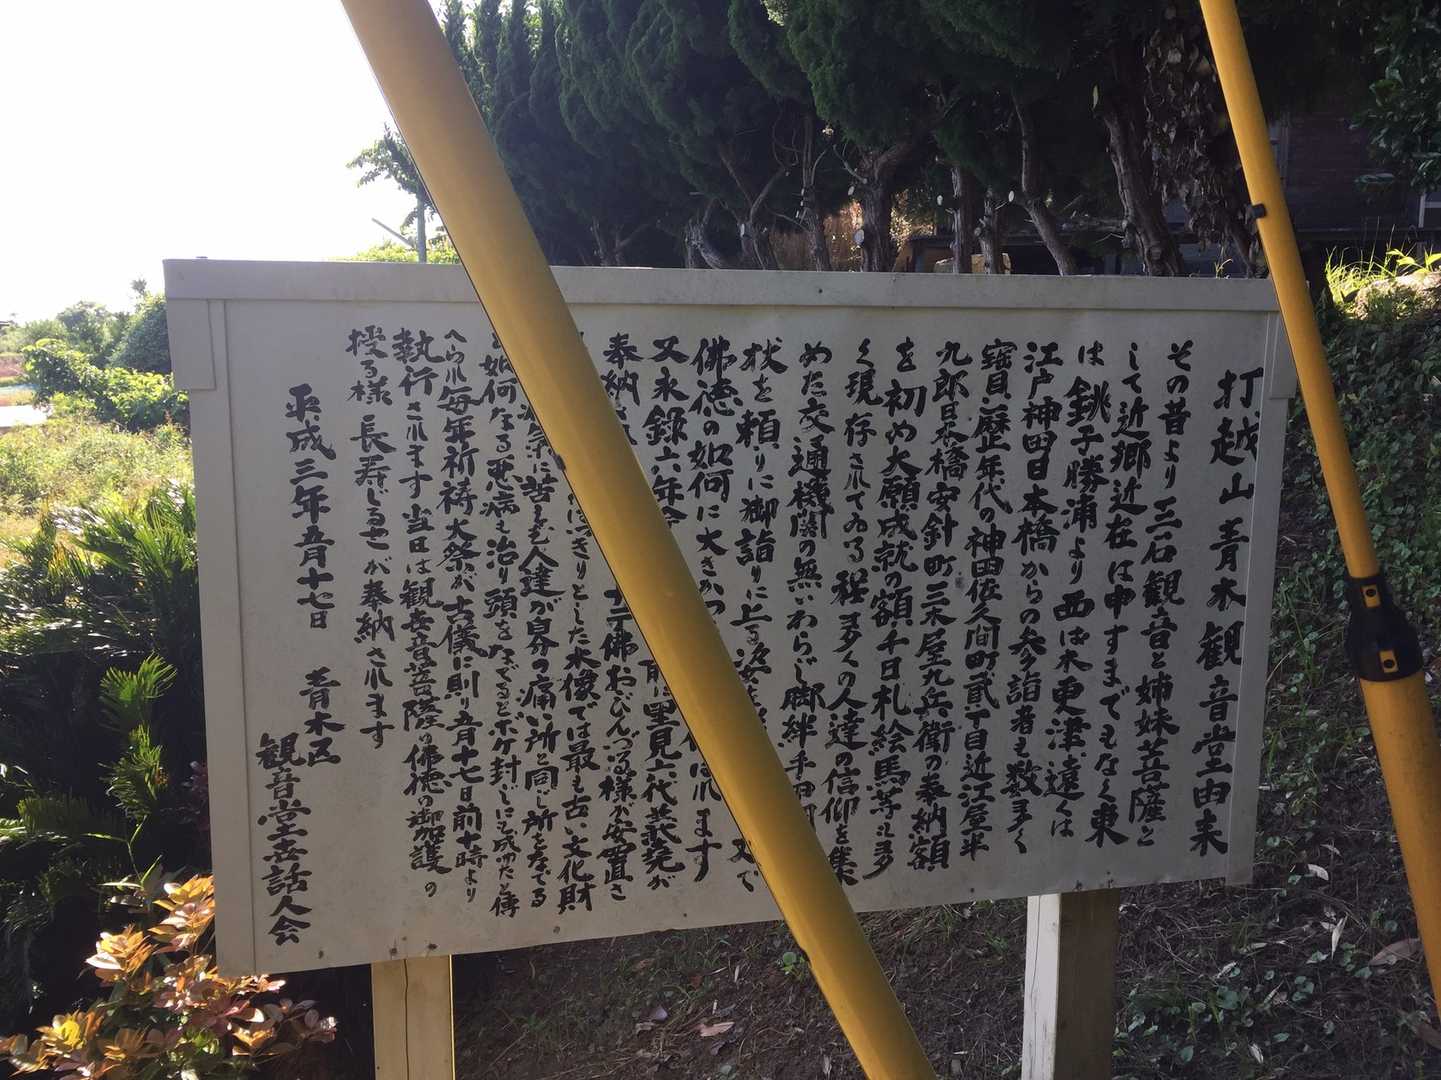 打越山青木観音堂由来
その昔より三石観音と姉妹菩薩と
して近郷近在は申すまでもなく東
は銚子勝浦より西は木更津遠くは
江戸神田日本橋からの参詣者も数多く
寶暦年代の神田佐久間町貳丁目近江屋半
九郎日本橋安針町三木屋九兵衛の奉納額
を初め大願成就の額千日札絵馬等
く現存されてゐる程多くの人達の信仰を集
めた交通機関の無いわらじ脚絆
状を頼りに御詣りに上る姿
佛徳の如何に大き れます
又永録六年 前に里見六代義堯が
奉納さ 佛おびんづる様が安置さ
きりとした木像では最も古い文化財
に苦しむ人達が自分の痛い所と同じ所をなでる
と如何なる悪病も治り頭をなでるとボケ封じにも成ったと傳
へられ毎年祈祷大祭が古儀に則り五月十七日前十時より
執行されます当日は観世音菩薩の佛徳の御加護の
授る様長寿じるこが奉納されます
平成三年五月十七日
青木区
観音堂世話人会